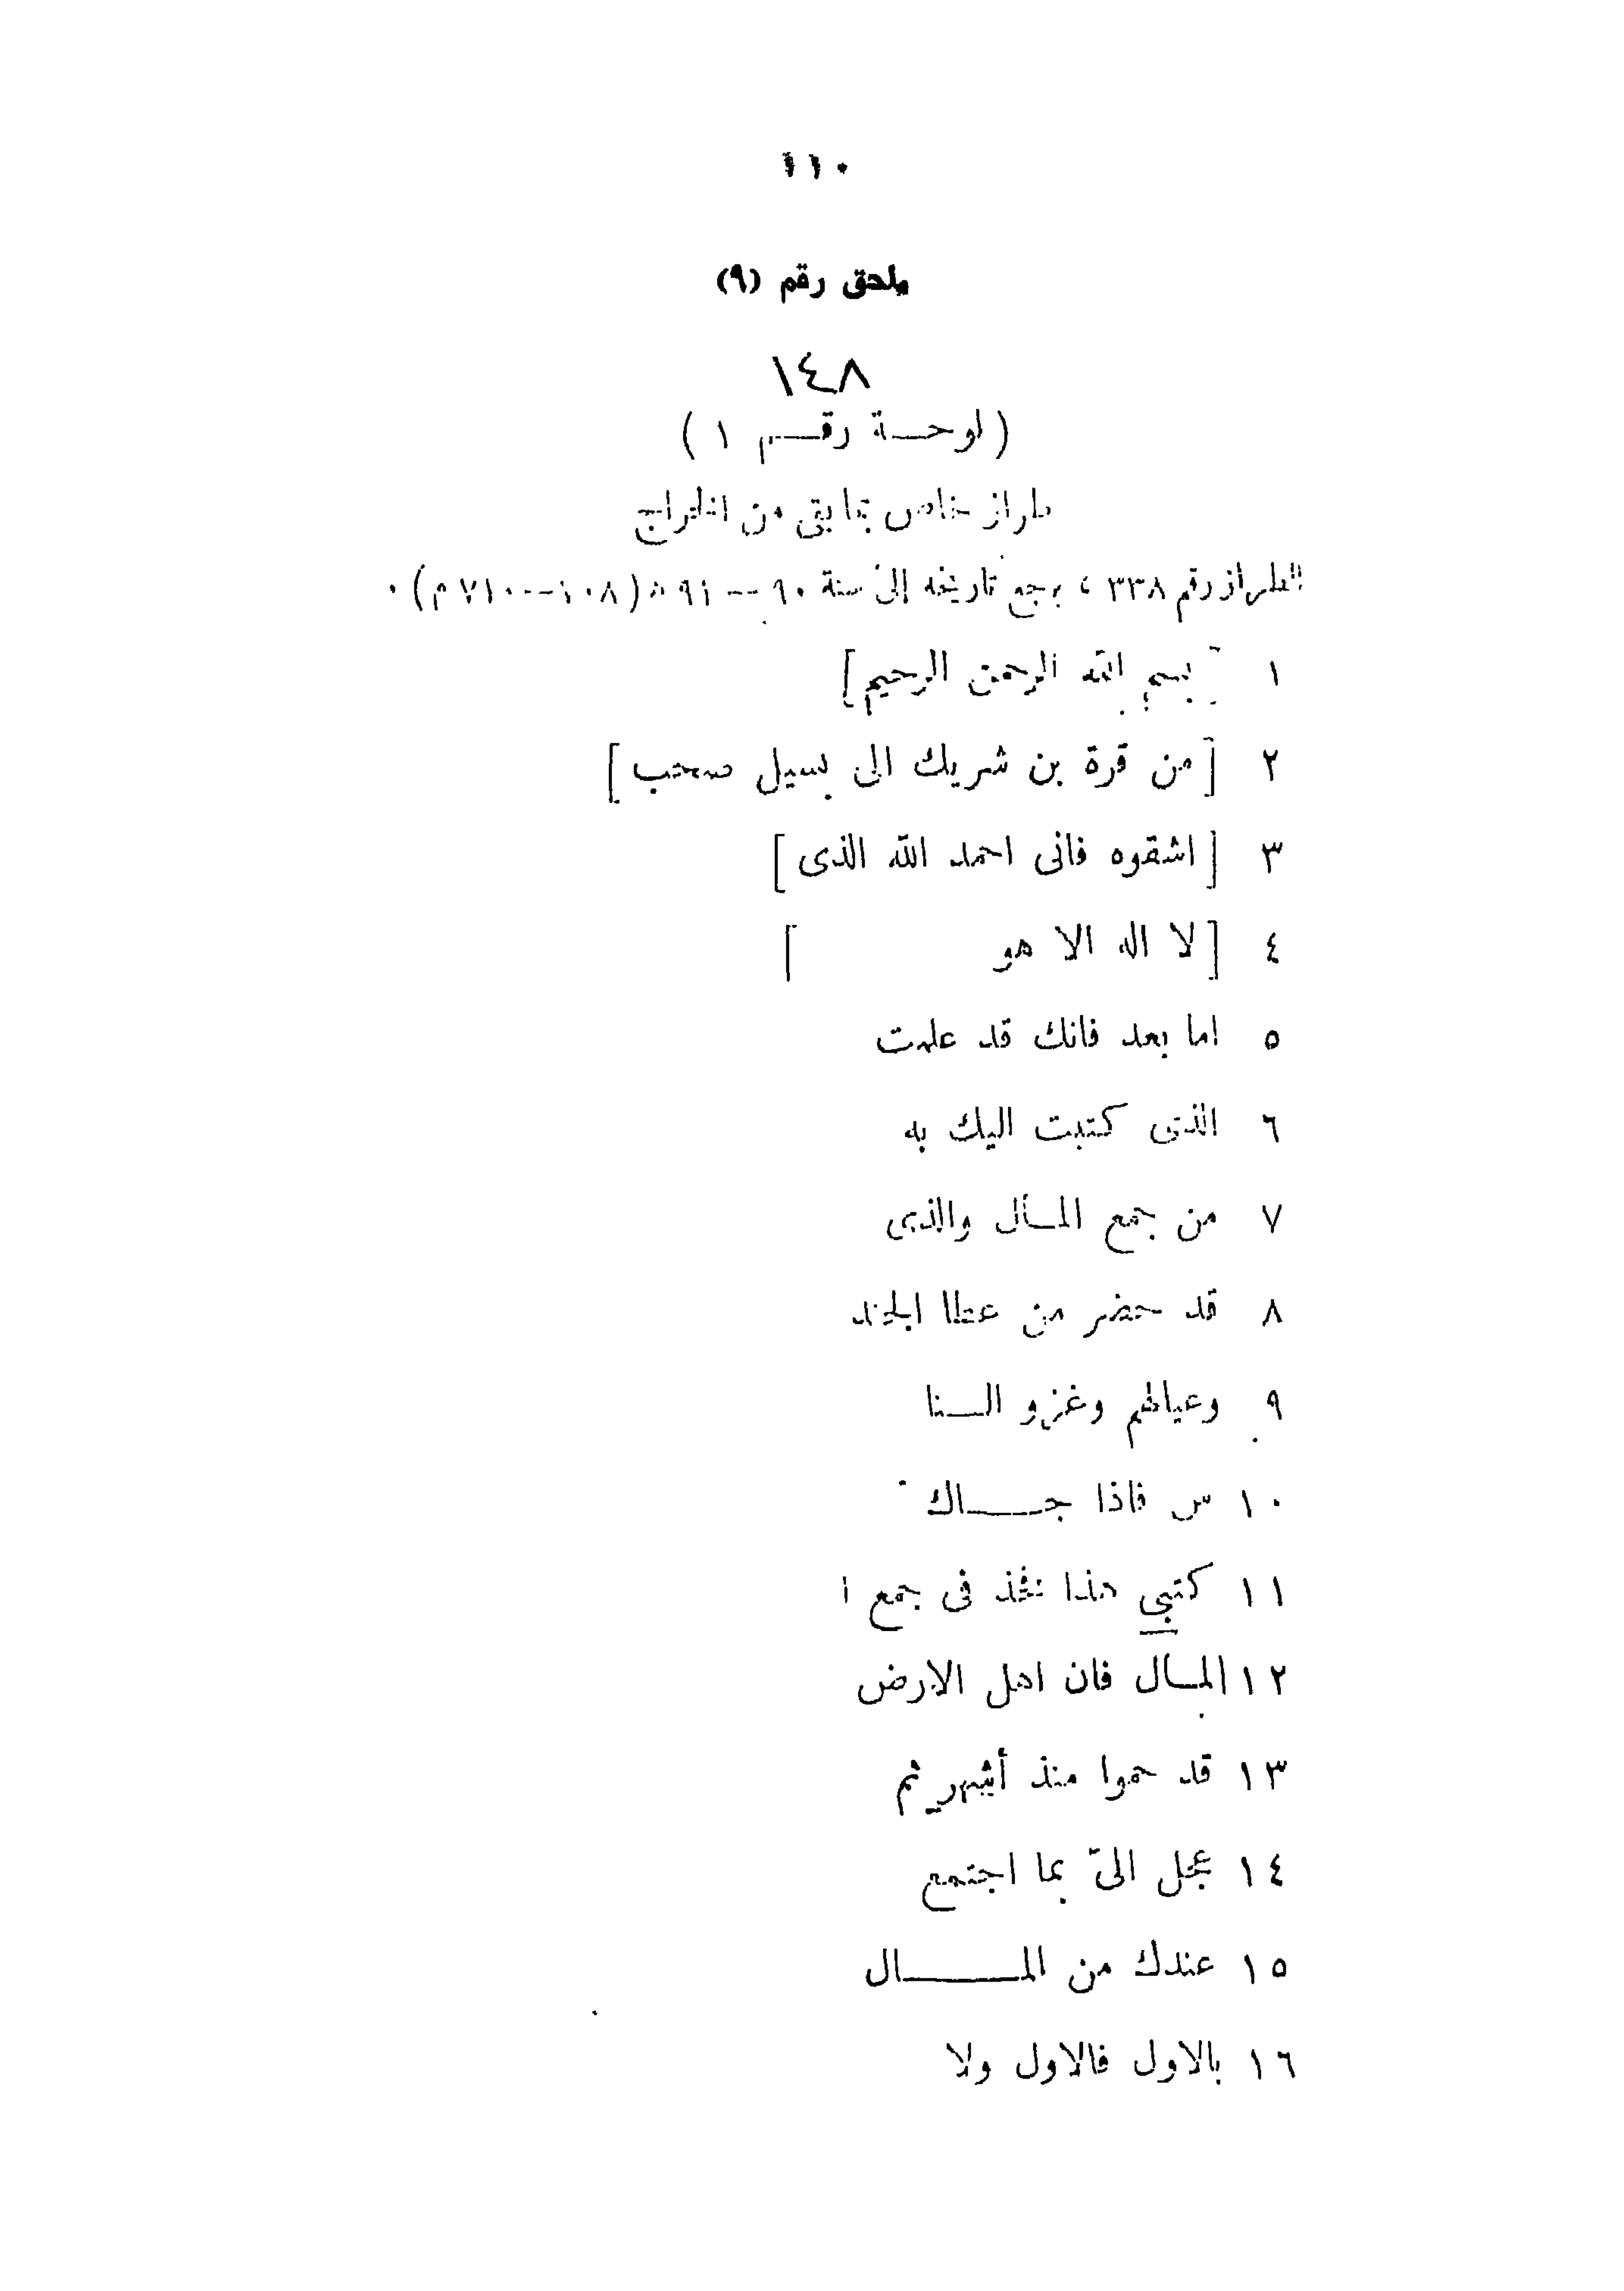 ١١٠
ملحق رقم (٩)
١٤٨
( لوحـــة رقـــم ١ )
طراز خاص بما بقى من الخراج
الطراز رقم ٣٣٨ ، يرجع تاريخه إلى سنة ٩٠ -- ٩١ هـ (٧٠٨--٧١٠ م) ٠
١ [بسم الله الرحمن الرحيم]
٢ [من قرة بن شريك الى بسيل صحب]
٣ [اشقوه فانى احمد الله الذى]
٤ [لا اله الا هو ]
٥ اما بعد فانك قد علمت
٦ الذى كتبت اليك به
٧ من جمع المــال والذى
٨ قد حضر من عطا الجند
٩ وعيالهم وغزو الـــنا
١٠ س فاذا جـــــاك
١١ كتبي هذا فخذ فى جمع ا
١٢ المــال فان اهل الارض
١٣ قد حموا منذ أشهر ثم
١٤ عجل الىّ بما اجتمع
١٥ عندك من المــــــــال
١٦ بالاول فالاول ولا